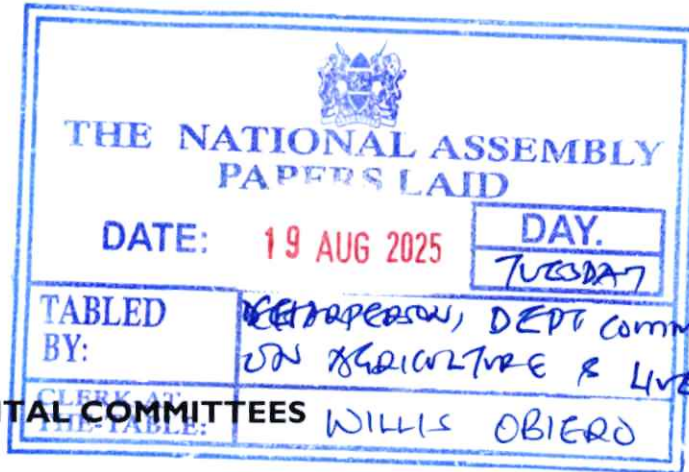 THE NATIONAL ASSEMBLY
PAPERS LAID
DATE: 19 AUG 2025 DAY.
TUESDAY
TABLED BY: CHAIRPERSON, DEPT COMM
ON AGRICULTURE & LIVE
CLERK AT THE-TABLE: WILLIS OBIERO
TAL COMMITTEES